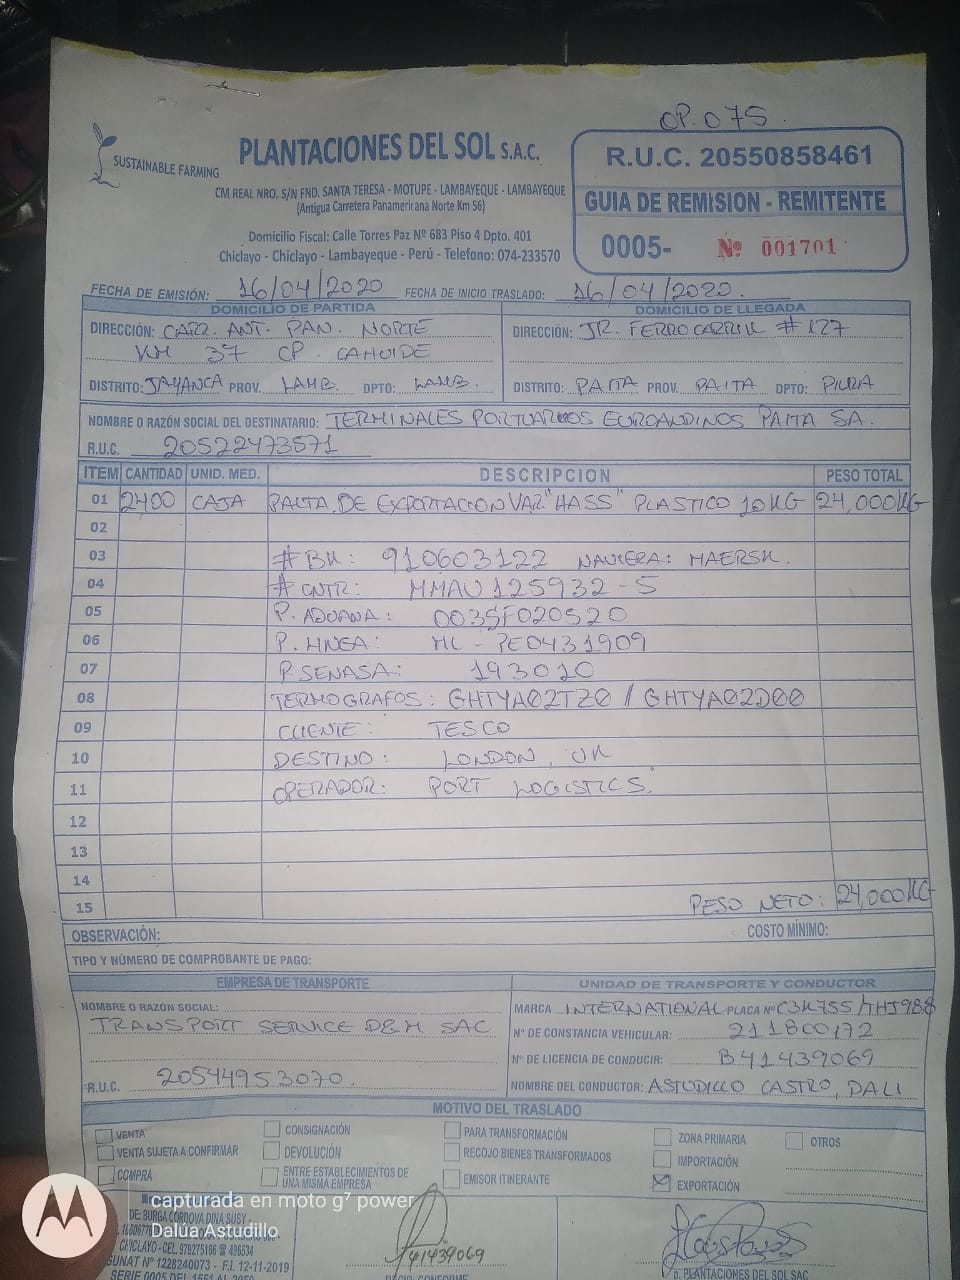 OP. 075
SUSTAINABLE FARMING
PLANTACIONES DEL SOL S.A.C.
CM REAL NRO. S/N FND. SANTA TERESA - MOTUPE - LAMBAYEQUE - LAMBAYEQUE
(Antigua Carretera Panamericana Norte Km 56)
Domicilio Fiscal: Calle Torres Paz Nº 683 Piso 4 Dpto. 401
Chiclayo - Chiclayo - Lambayeque - Perú - Telefono: 074-233570
R.U.C. 20550858461
GUIA DE REMISION - REMITENTE
0005- Nº 001701
FECHA DE EMISIÓN: 16/04/2020 FECHA DE INICIO TRASLADO: 16/04/2020.
DOMICILIO DE PARTIDA
DIRECCIÓN: CARR. ANT. PAN. NORTE
KM 37 CP. CAHUIDE
DISTRITO: JAYANCA PROV. LAMB. DPTO: LAMB.
DOMICILIO DE LLEGADA
DIRECCIÓN: JR. FERROCARRIL # 127
DISTRITO: PAITA PROV. PAITA DPTO: PIURA
NOMBRE O RAZÓN SOCIAL DEL DESTINATARIO: TERMINALES PORTUARIOS EUROANDINOS PAITA SA.
R.U.C. 20522473571
ITEM CANTIDAD UNID. MED. DESCRIPCION PESO TOTAL
01 2400 CAJA PALTA DE EXPORTACION VAR "HASS" PLASTICO 10KG 24,000KG
02
03 # BK: 910603122 NAVIERA: MAERSK.
04 # CNTR: MMAU125932-5
05 P. ADUANA: 0035F020520
06 P. LINEA: ML - PE0431909
07 P. SENASA: 193010
08 TERMOGRAFOS: GHTYA02TZ0 / GHTYA02D00
09 CLIENTE: TESCO
10 DESTINO: LONDON, UK
11 OPERADOR: PORT LOGISTICS.
12
13
14
15 PESO NETO: 24,000KG
OBSERVACIÓN: COSTO MÍNIMO:
TIPO Y NÚMERO DE COMPROBANTE DE PAGO:
EMPRESA DE TRANSPORTE
NOMBRE O RAZÓN SOCIAL:
TRANSPORT SERVICE D&M SAC
R.U.C. 20544953070.
UNIDAD DE TRANSPORTE Y CONDUCTOR
MARCA INTERNATIONAL PLACA Nº C3K755/THJ988
Nº DE CONSTANCIA VEHICULAR: 211800172
Nº DE LICENCIA DE CONDUCIR: B41439069
NOMBRE DEL CONDUCTOR: ASTUDILLO CASTRO, DALI
MOTIVO DEL TRASLADO
VENTA CONSIGNACIÓN PARA TRANSFORMACIÓN ZONA PRIMARIA OTROS
VENTA SUJETA A CONFIRMAR DEVOLUCIÓN RECOJO BIENES TRANSFORMADOS IMPORTACIÓN
COMPRA ENTRE ESTABLECIMIENTOS DE UNA MISMA EMPRESA EMISOR ITINERANTE EXPORTACIÓN
capturada en moto g⁷ power
Dalúa Astudillo
DE: BURGA CORDOVA DINA SUSY
CHICLAYO - CEL. 979275166 ☎ 496534
SUNAT Nº 1228240073 - F.I. 12-11-2019
SERIE 0005 DEL 1551 AL 2050
41439069
RECIBI CONFORME
p. PLANTACIONES DEL SOL SAC